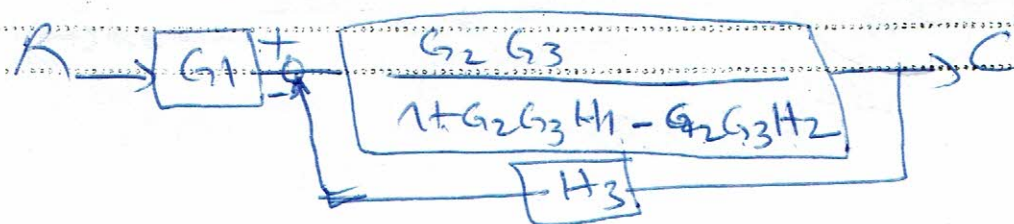 R G1 + G2 G3 C
-
1+G2G3H1 - G2G3H2
H3